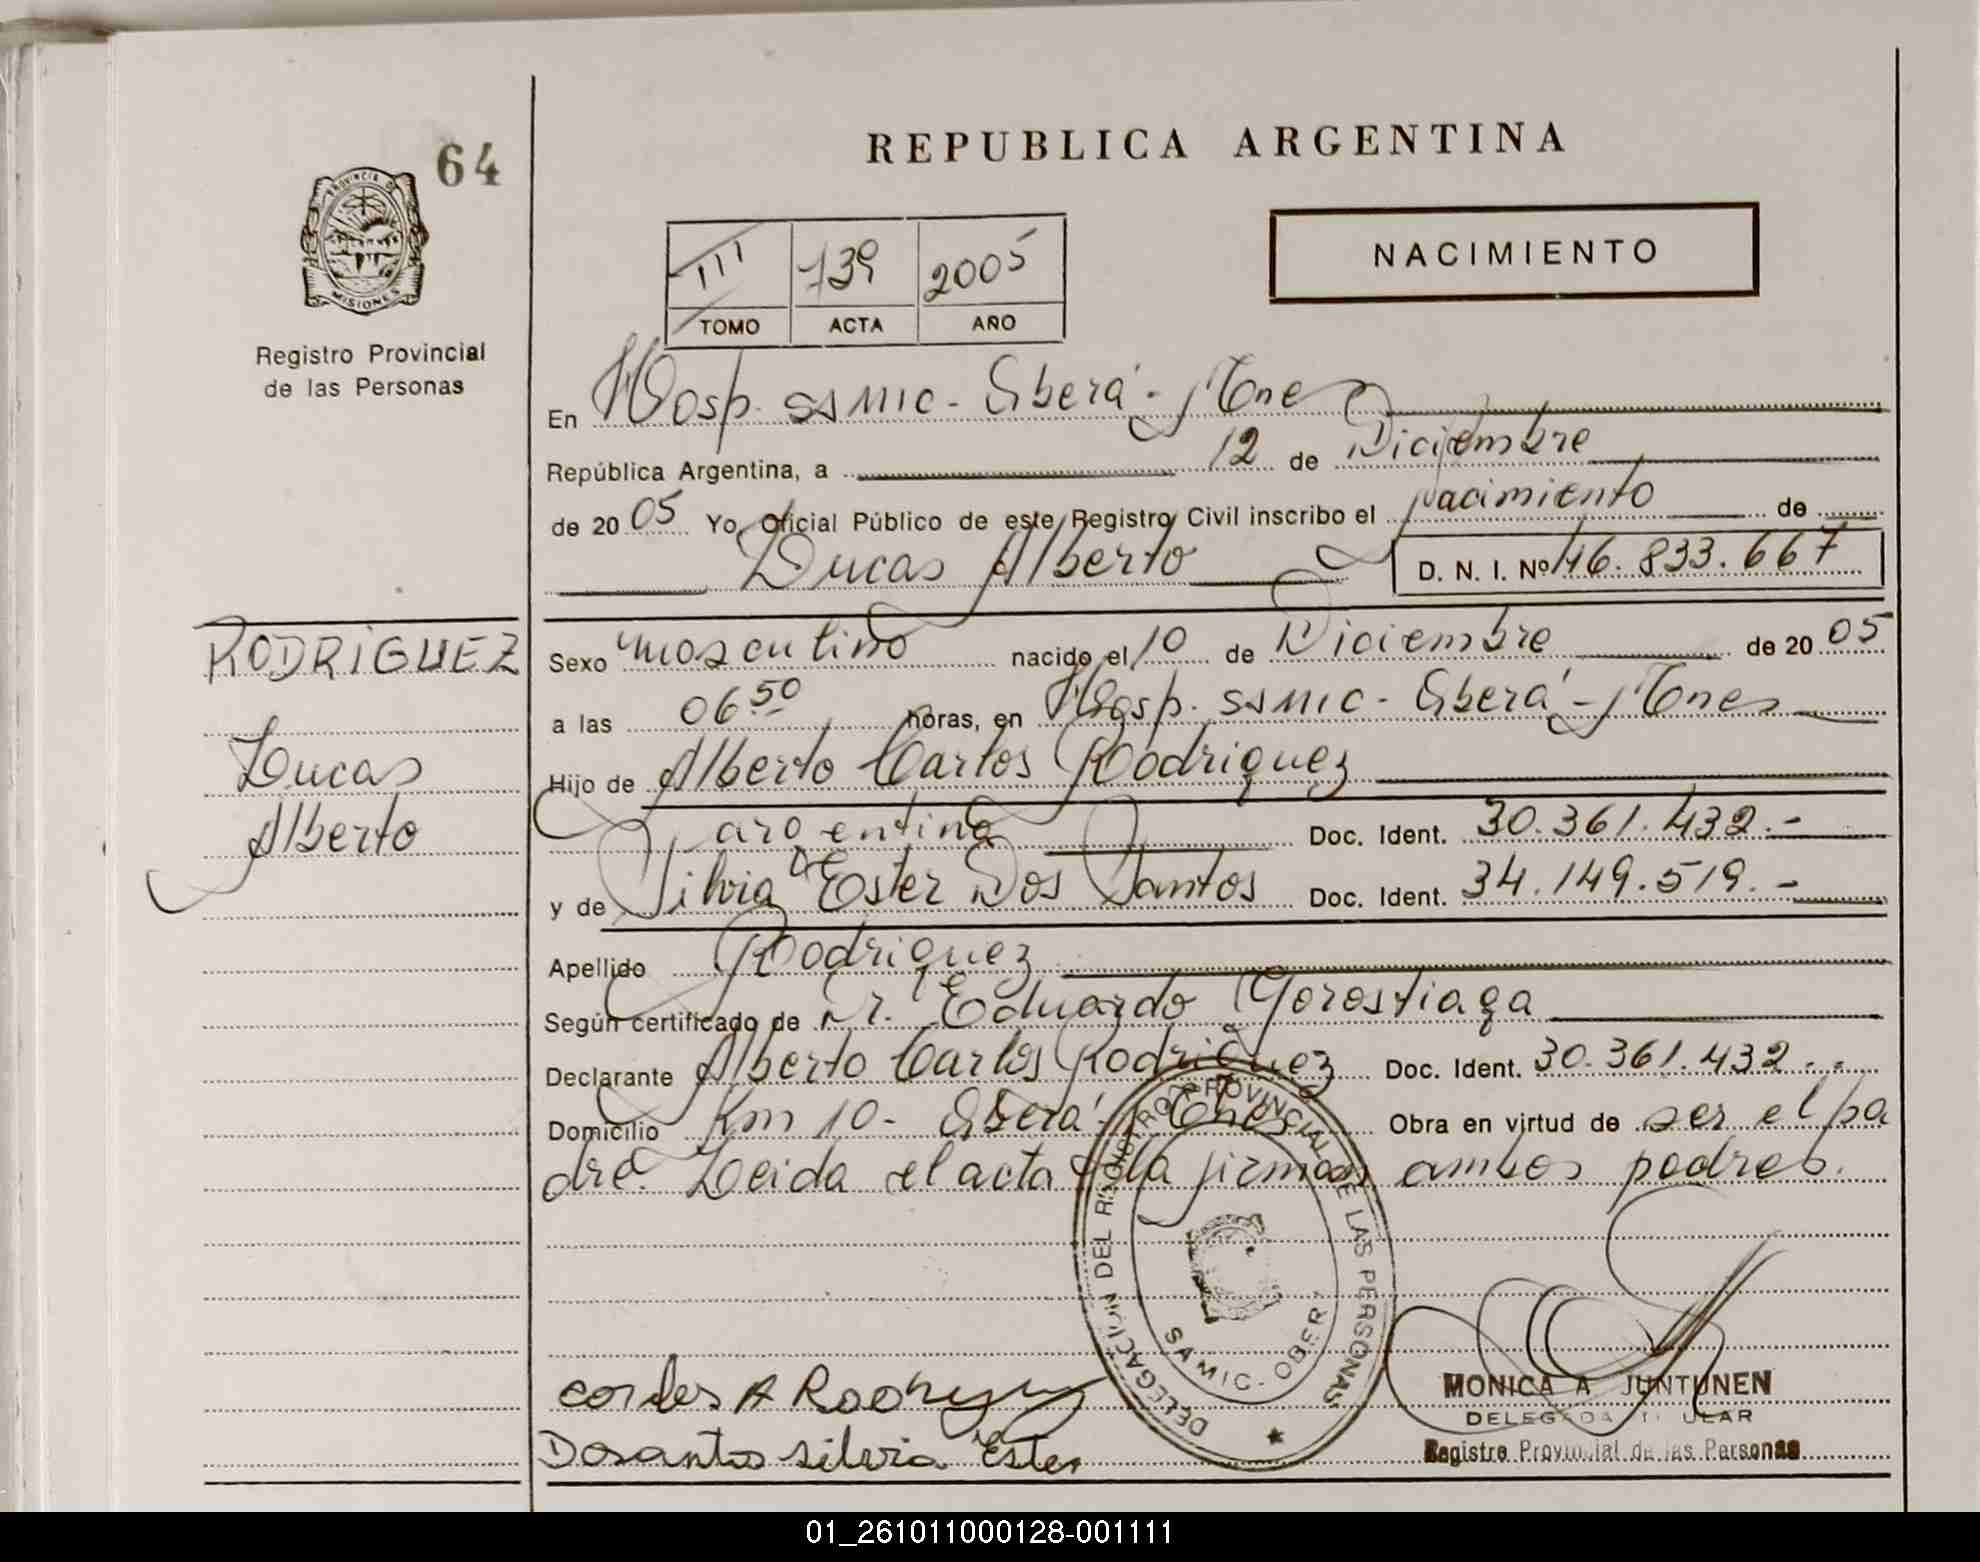 64
PROVINCIA DE
MISIONES
Registro Provincial
de las Personas
REPUBLICA ARGENTINA
NACIMIENTO
III 139 2005
TOMO ACTA AÑO
En Hosp. SAMIC - Oberá - Mnes
República Argentina, a 12 de Diciembre
de 2005 Yo, Oficial Público de este Registro Civil inscribo el nacimiento de
Lucas Alberto D. N. I. Nº 46.833.667
RODRIGUEZ
Lucas
Alberto
Sexo masculino nacido el 10 de Diciembre de 2005
a las 06 50 horas, en Hosp. SAMIC - Oberá - Mnes
Hijo de Alberto Carlos Rodriguez
argentino Doc. Ident. 30.361.432.-
y de Silvia Ester Dos Santos Doc. Ident. 34.149.519.-
Apellido Rodriguez
Según certificado de Dr. Eduardo Gorostiaga
Declarante Alberto Carlos Rodriguez Doc. Ident. 30.361.432.-
Domicilio Km 10 - Oberá - Mnes Obra en virtud de ser el pa
dre. Leida el acta la firman ambos padres.
DELEGACION DEL REGISTRO PROVINCIAL DE LAS PERSONAS
SAMIC - OBERA
Dosantos silvia Ester
MONICA A JUNTUNEN
DELEGADA TITULAR
Registro Provincial de las Personas
01_261011000128-001111